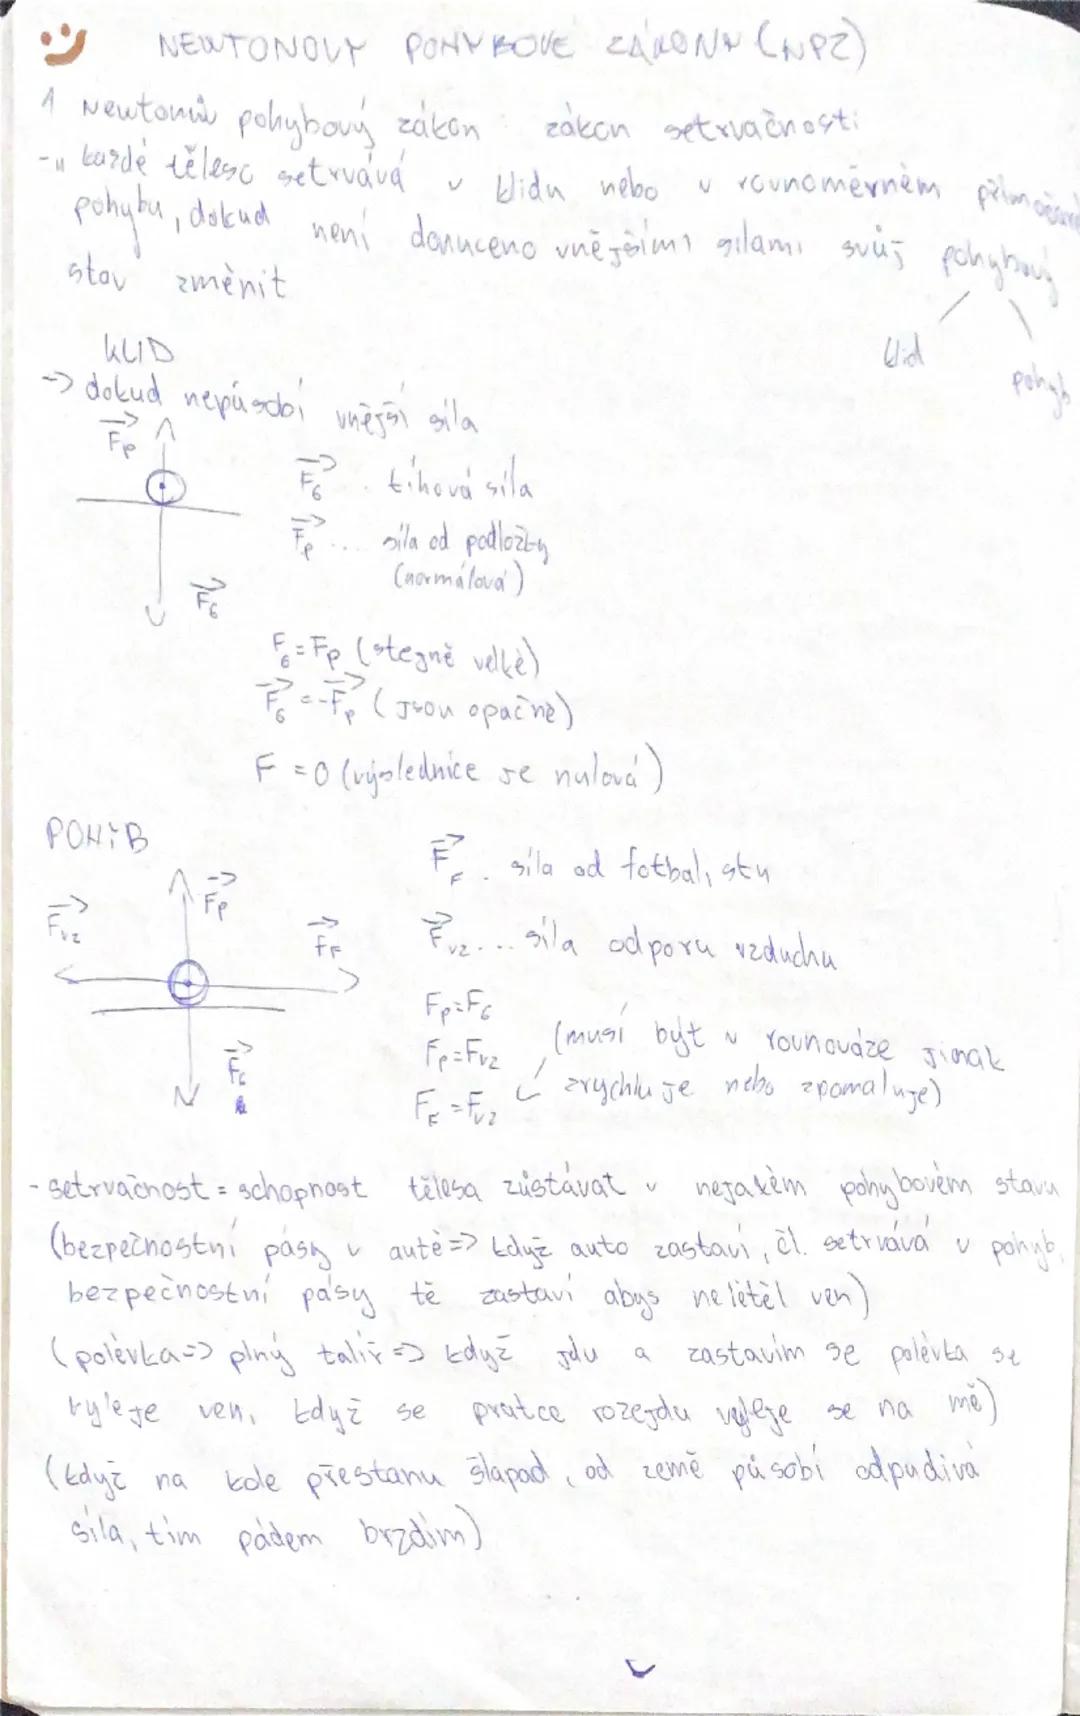 NEWTONOVY POHYBOVÉ ZÁKONY (NPZ)
1 Newtonův pohybový zákon : zákon setrvačnosti
-„ každé těleso setrvává v klidu nebo v rovnoměrném přímočarém
pohybu, dokud není donuceno vnějšími silami svůj pohybový
stav změnit
klid
pohyb
KLID
-> dokud nepůsobí vnější síla
Fp
FG
FG .. tíhová síla
Fp ... síla od podložky
(normálová)
FG = Fp (stejně velké)
FG = -Fp (jsou opačné)
F = 0 (výslednice je nulová)
POHYB
Fvz
Fp
FF
FG
FF .. síla od fotbalistu
Fvz ... síla odporu vzduchu
Fp = FG
Fp = Fvz
FF = Fvz
(musí být v rovnováze jinak
zrychluje nebo zpomaluje)
- setrvačnost = schopnost tělesa zůstávat v nejakém pohybovém stavu
(bezpečnostní pásy v autě => když auto zastaví, čl. setrvává v pohyb.
bezpečnostní pásy tě zastaví abys neletěl ven)
(polévka => plný talíř => když jdu a zastavím se polévka se
vyleje ven, když se prutce rozejdu vyleje se na mě)
(když na kole přestanu šlapad, od země působí odpudivá
síla, tím pádem brzdím)